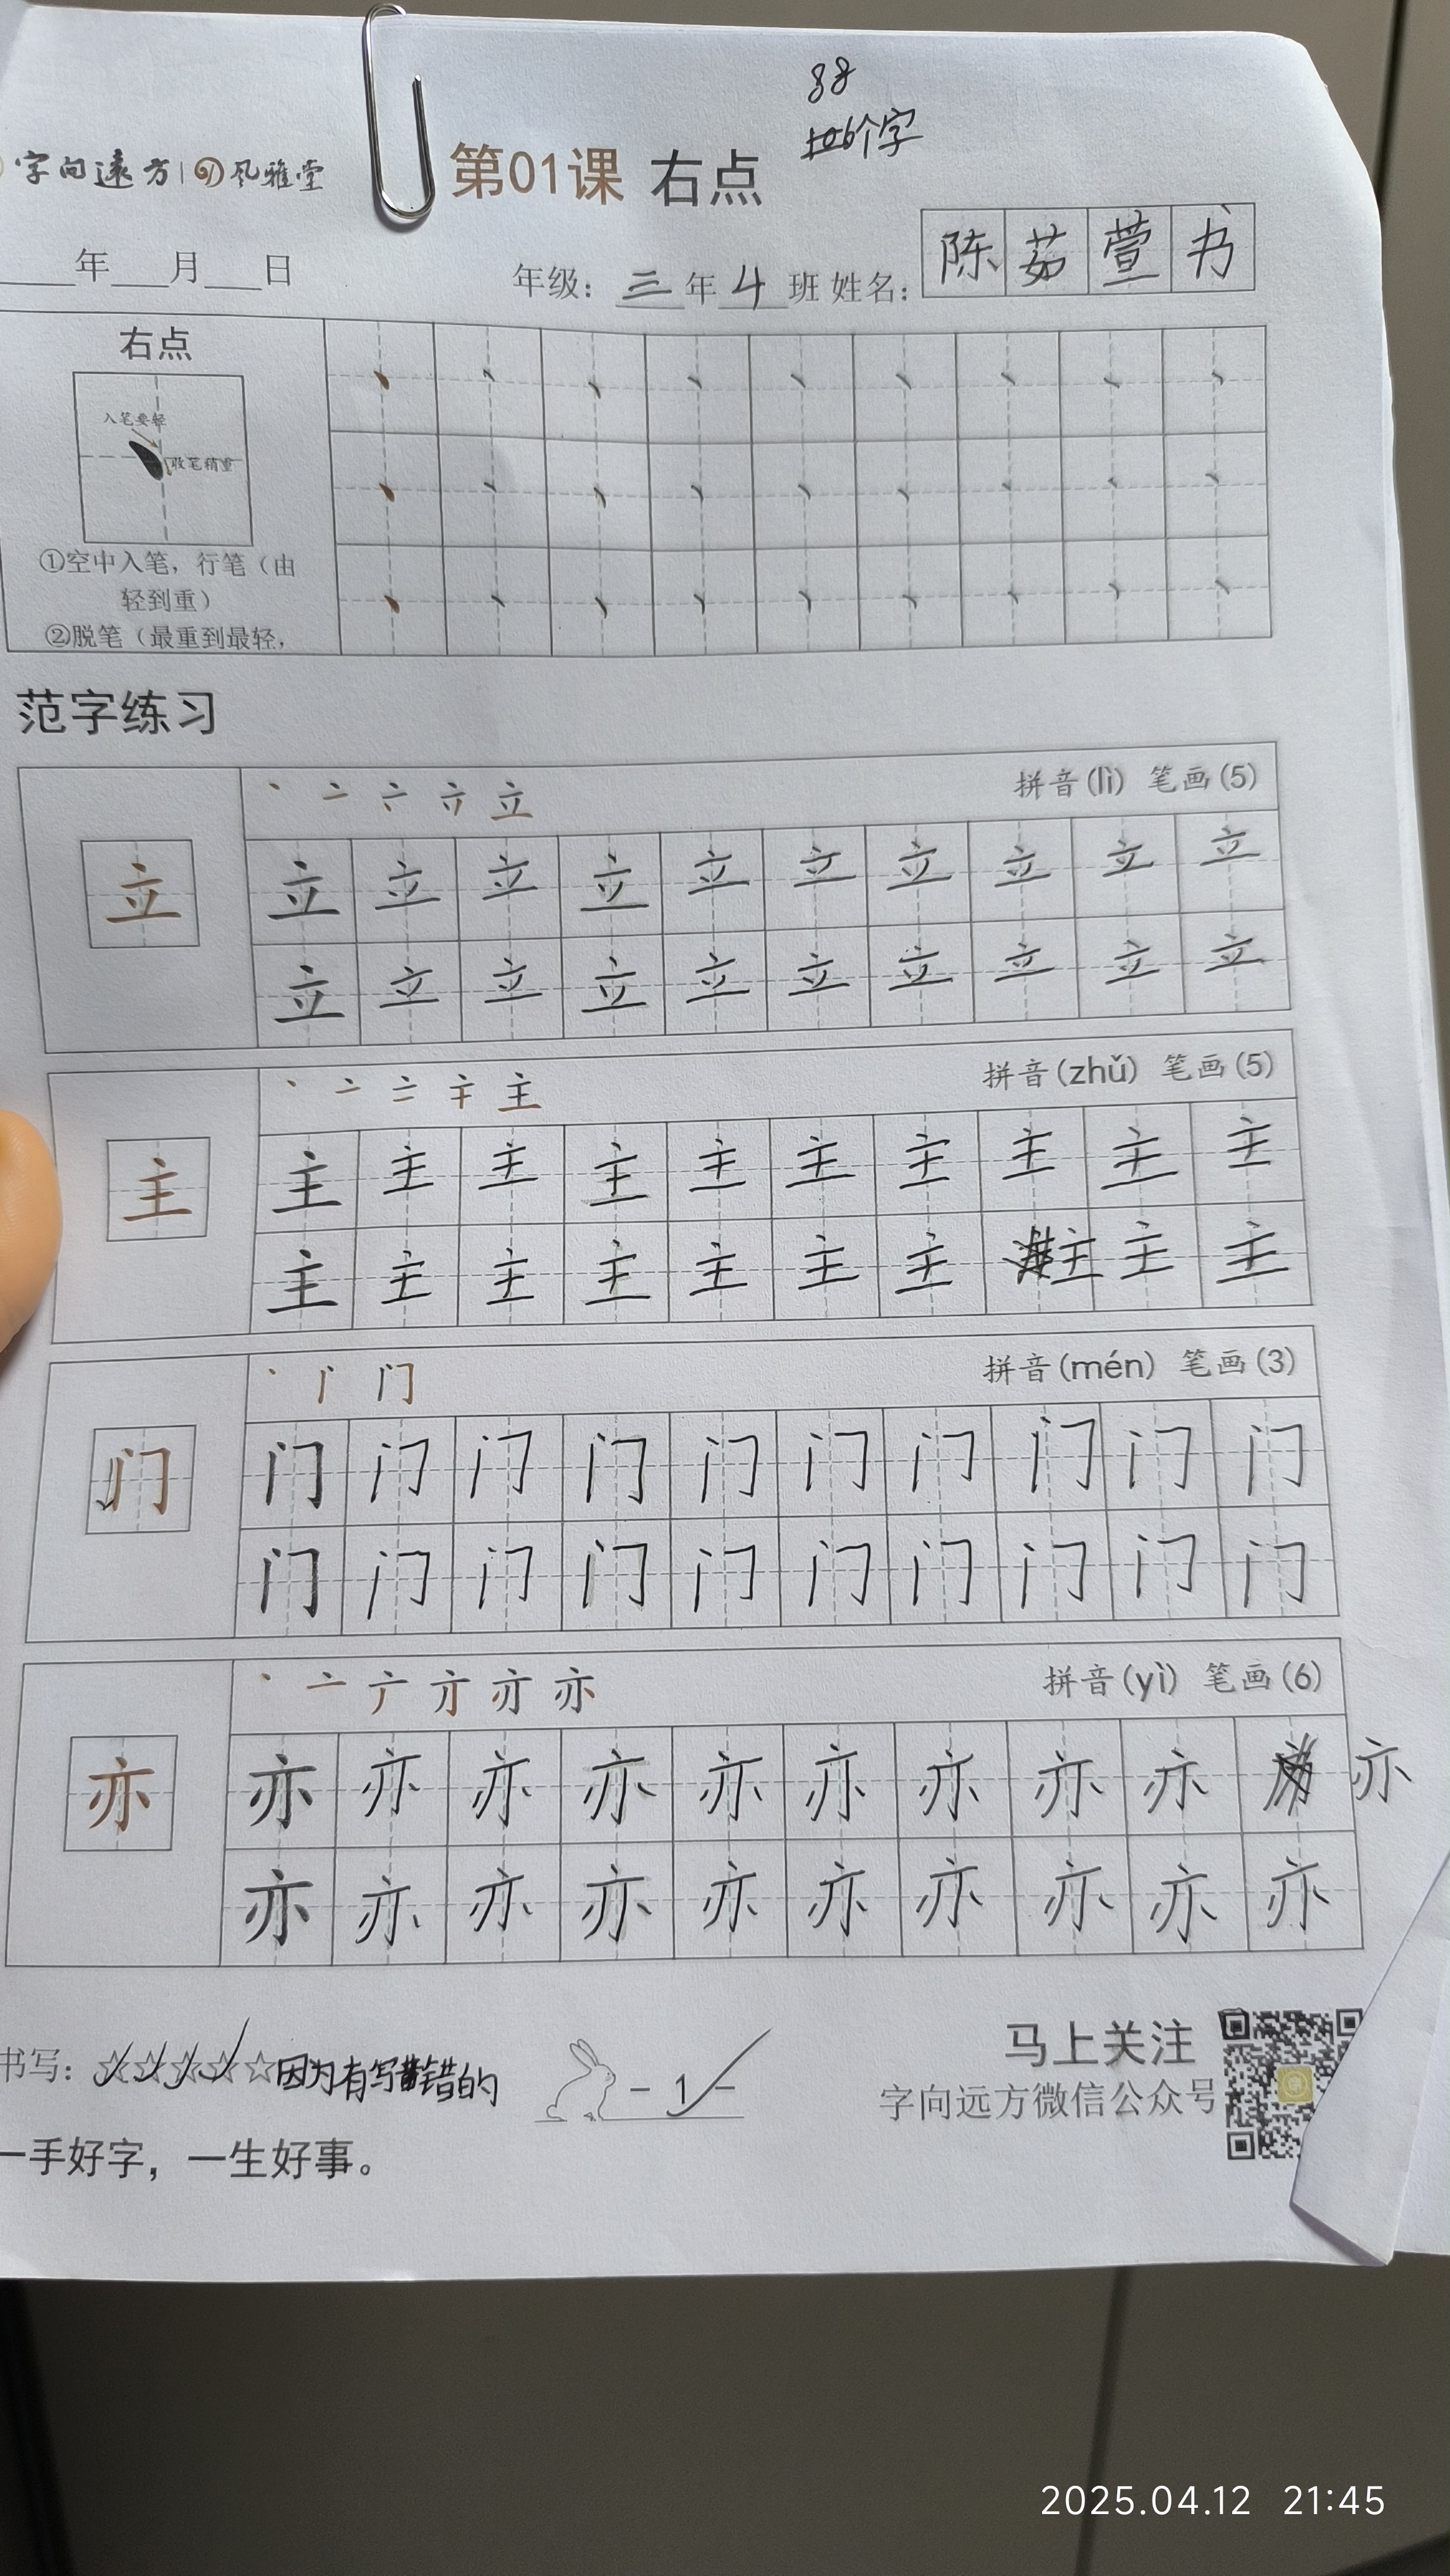 88
106个字
字向遠方 | 风雅堂
第01课 右点
年 月 日
年级: 三 年 4 班 姓名: 陈茹萱书
右点
入笔要轻
收笔稍重
①空中入笔，行笔（由
轻到重）
②脱笔（最重到最轻，
范字练习
丶 亠 立
拼音(lì) 笔画(5)
立
立 立 立 立 立 立 立 立 立 立
立 立 立 立 立 立 立 立 立 立
丶 亠 主
拼音(zhǔ) 笔画(5)
主
主 主 主 主 主 主 主 主 主 主
主 主 主 主 主 主 主 主 主 主
丶 门
拼音(mén) 笔画(3)
门
门 门 门 门 门 门 门 门 门 门
门 门 门 门 门 门 门 门 门 门
丶 亠 亦
拼音(yì) 笔画(6)
亦
亦 亦 亦 亦 亦 亦 亦 亦 亦 亦
亦 亦 亦 亦 亦 亦 亦 亦 亦 亦
书写: ☆☆☆☆☆因为有写错的
- 1 -
马上关注
字向远方微信公众号
一手好字，一生好事。
2025.04.12 21:45